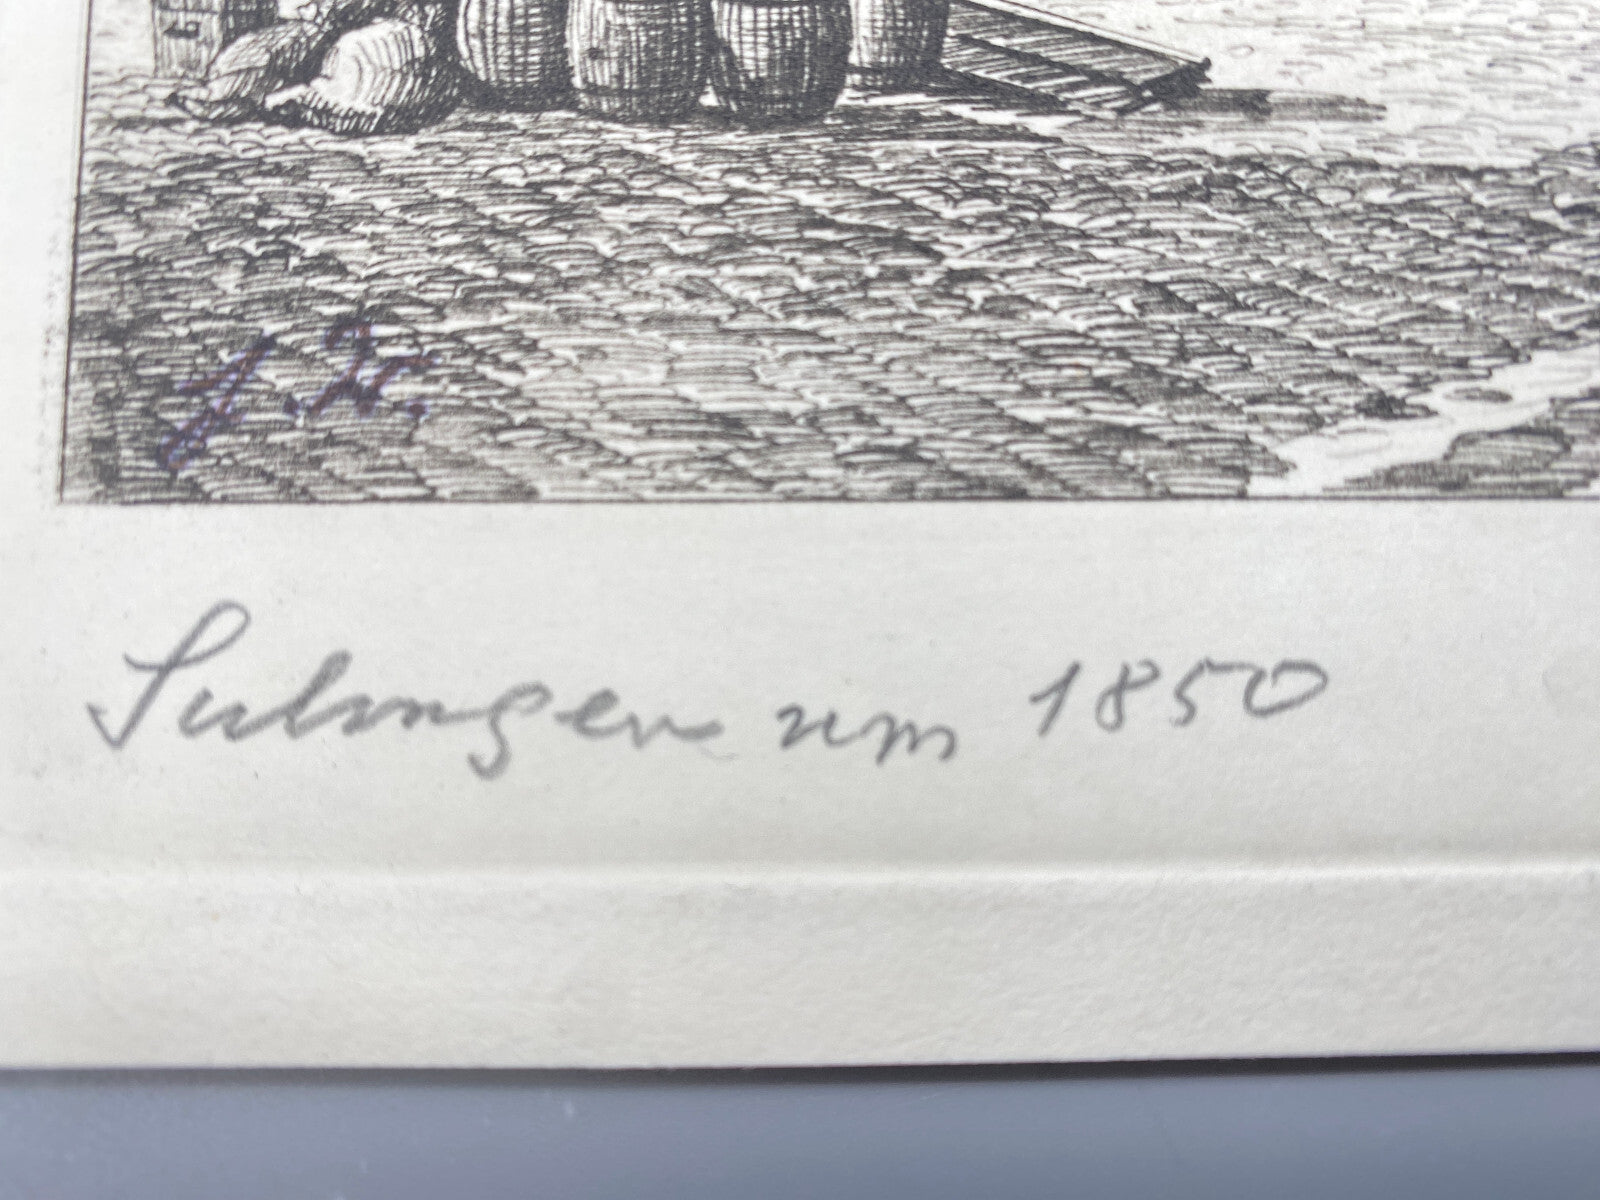 Sulingen um 1850